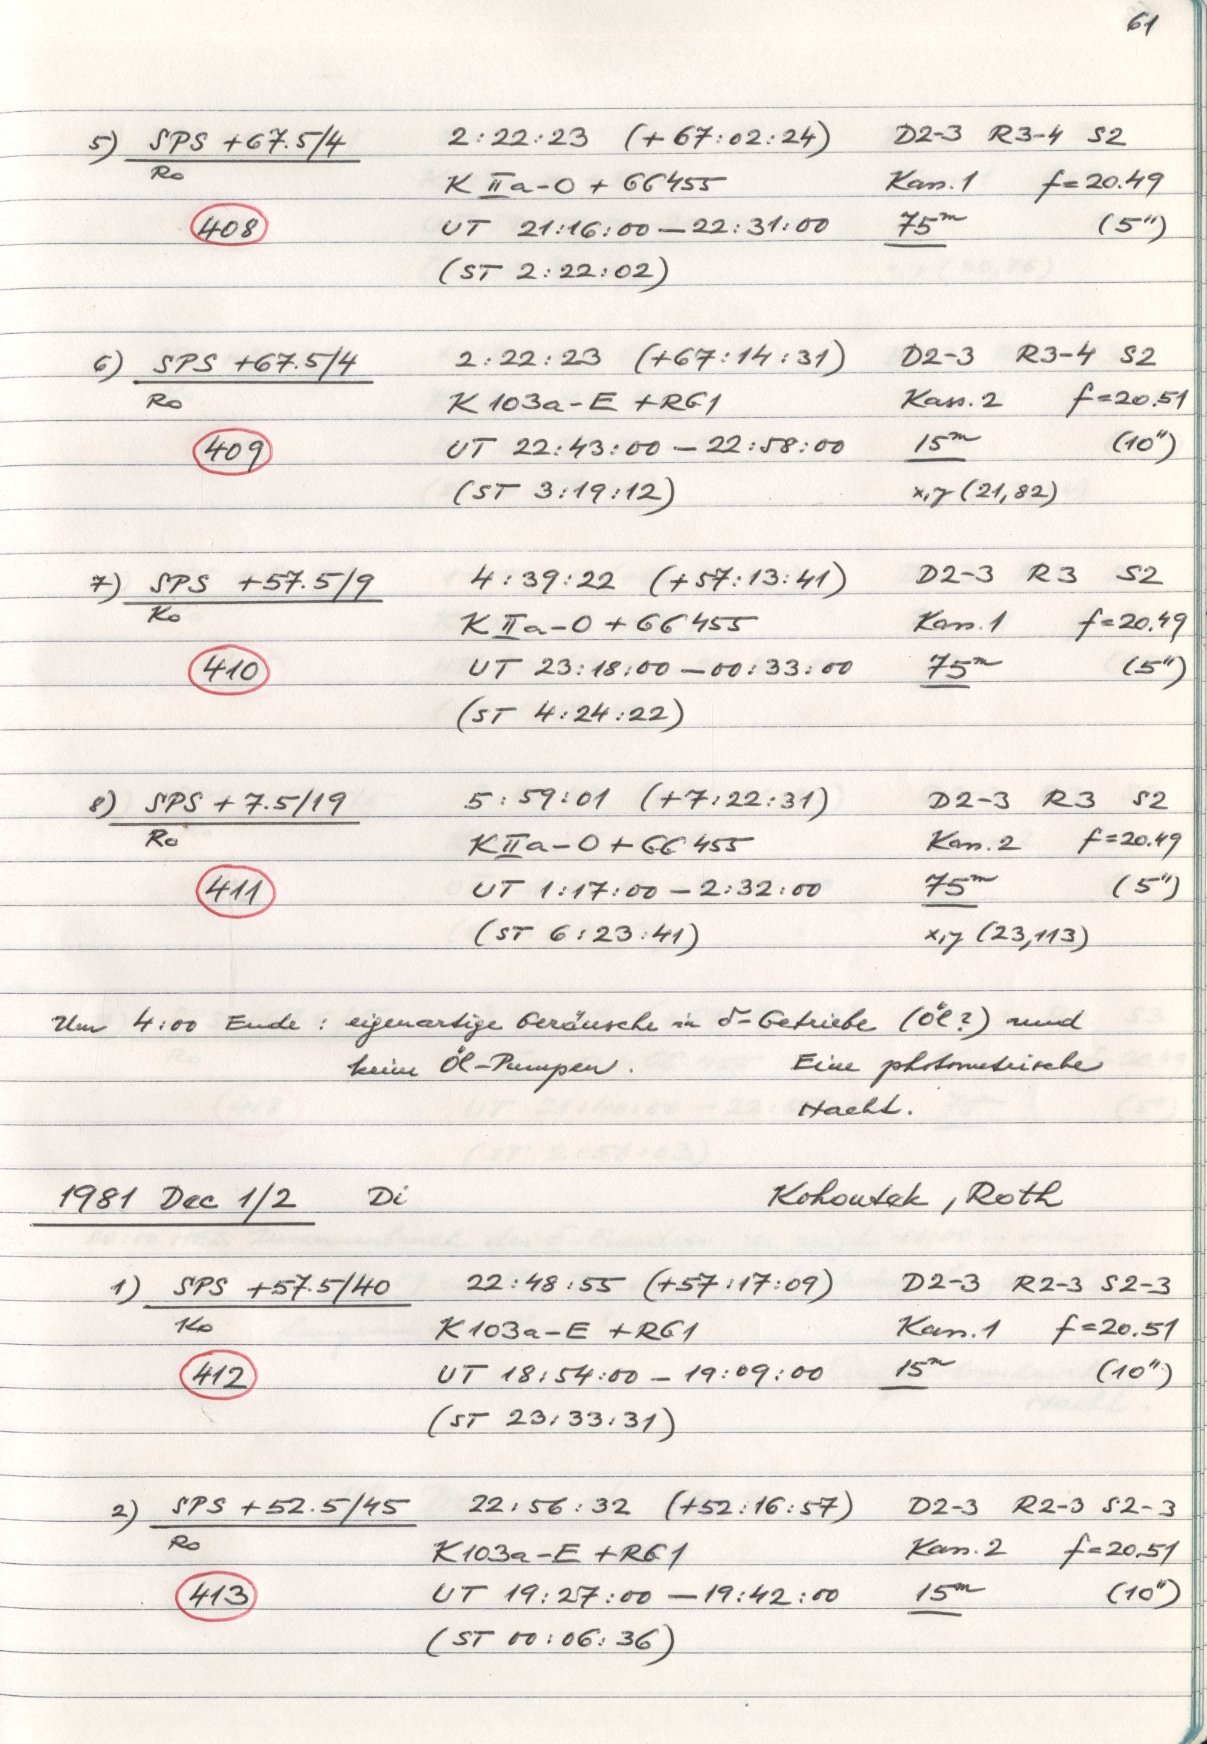 61
5) SPS +67.5/4 2:22:23 (+67:02:24) D2-3 R3-4 S2
Ro K IIa-O + GG455 Kass.1 f=20.49
408 UT 21:16:00 – 22:31:00 75m (5")
(ST 2:22:02)
6) SPS +67.5/4 2:22:23 (+67:14:31) D2-3 R3-4 S2
Ro K 103a-E + RG1 Kass.2 f=20.51
409 UT 22:43:00 – 22:58:00 15m (10")
(ST 3:19:12) x,y (21,82)
7) SPS +57.5/9 4:39:22 (+57:13:41) D2-3 R3 S2
Ko K IIa-O + GG455 Kass.1 f=20.49
410 UT 23:18:00 – 00:33:00 75m (5")
(ST 4:24:22)
8) SPS +7.5/19 5:59:01 (+7:22:31) D2-3 R3 S2
Ro K IIa-O + GG455 Kass.2 f=20.49
411 UT 1:17:00 – 2:32:00 75m (5")
(ST 6:23:41) x,y (23,113)
Um 4:00 Ende : eigenartige Geräusche in δ-Getriebe (Öl?) und
keine Öl-Pumpen. Eine photometrische
Nacht.
1981 Dec 1/2 Di Kohoutek, Roth
1) SPS +57.5/40 22:48:55 (+57:17:09) D2-3 R2-3 S2-3
Ko K 103a-E + RG1 Kass.1 f=20.51
412 UT 18:54:00 – 19:09:00 15m (10")
(ST 23:33:31)
2) SPS +52.5/45 22:56:32 (+52:16:57) D2-3 R2-3 S2-3
Ro K 103a-E + RG1 Kass.2 f=20.51
413 UT 19:27:00 – 19:42:00 15m (10")
(ST 00:06:36)